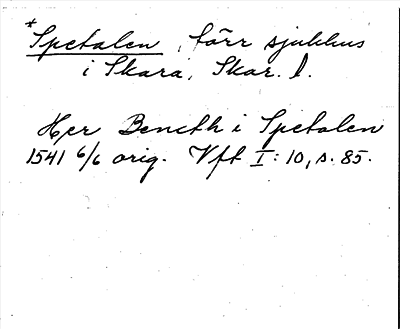 *Spetalen, förr sjukhus
i Skara, Skar. l.
Her Beneth i Spetalen
1541 6/6 orig. Vft I: 10, s. 85.